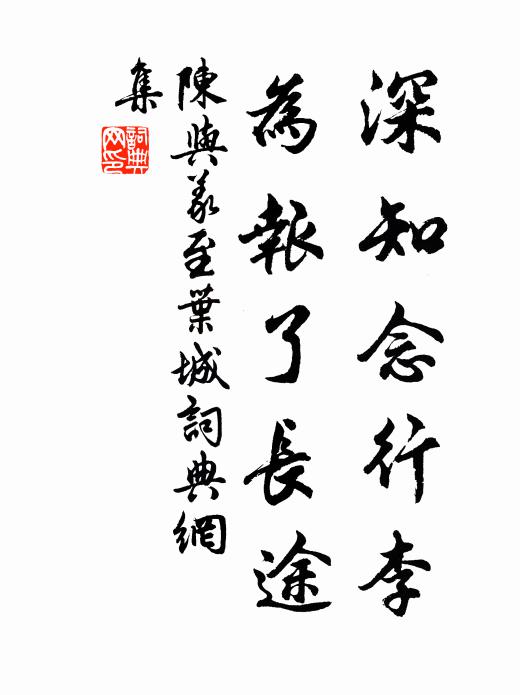 深知念行李
為報了長途
陳與義至葉城詞典網
集
詞典
网印